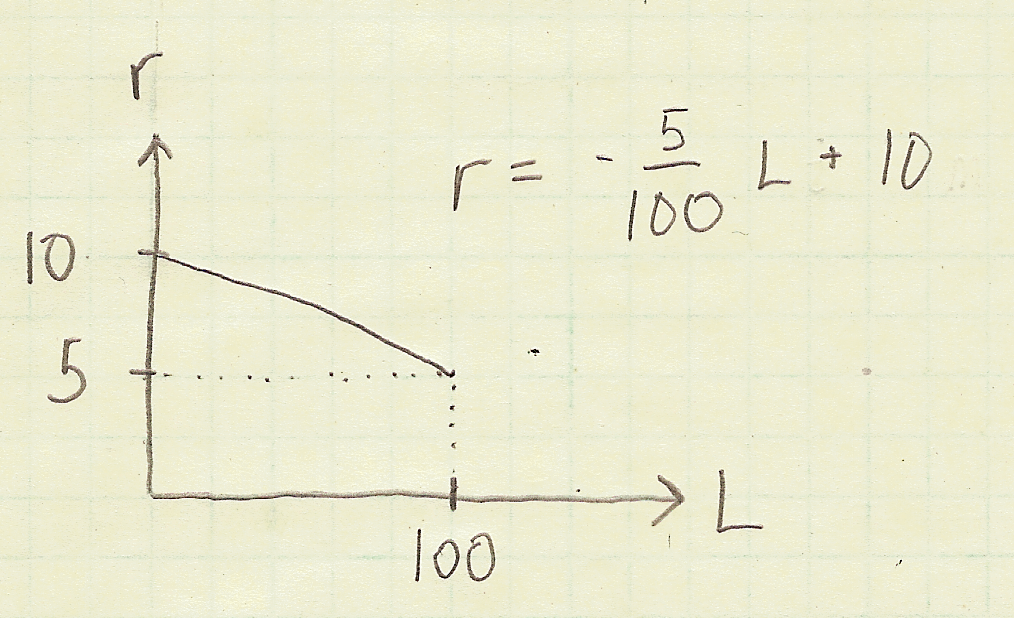 r
r = - 5/100 L + 10
10
5
100
L